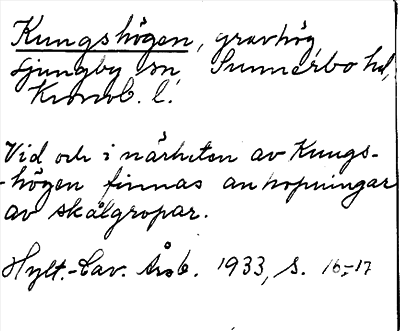 Kungshögen, gravhög,
Ljungby sn, Sunnerbo hd,
Kronob. l.
Vid och i närheten av Kungs-
-högen finnas anhopningar
av skålgropar.
Hylt.-Cav. Årsb. 1933, s. 16-17